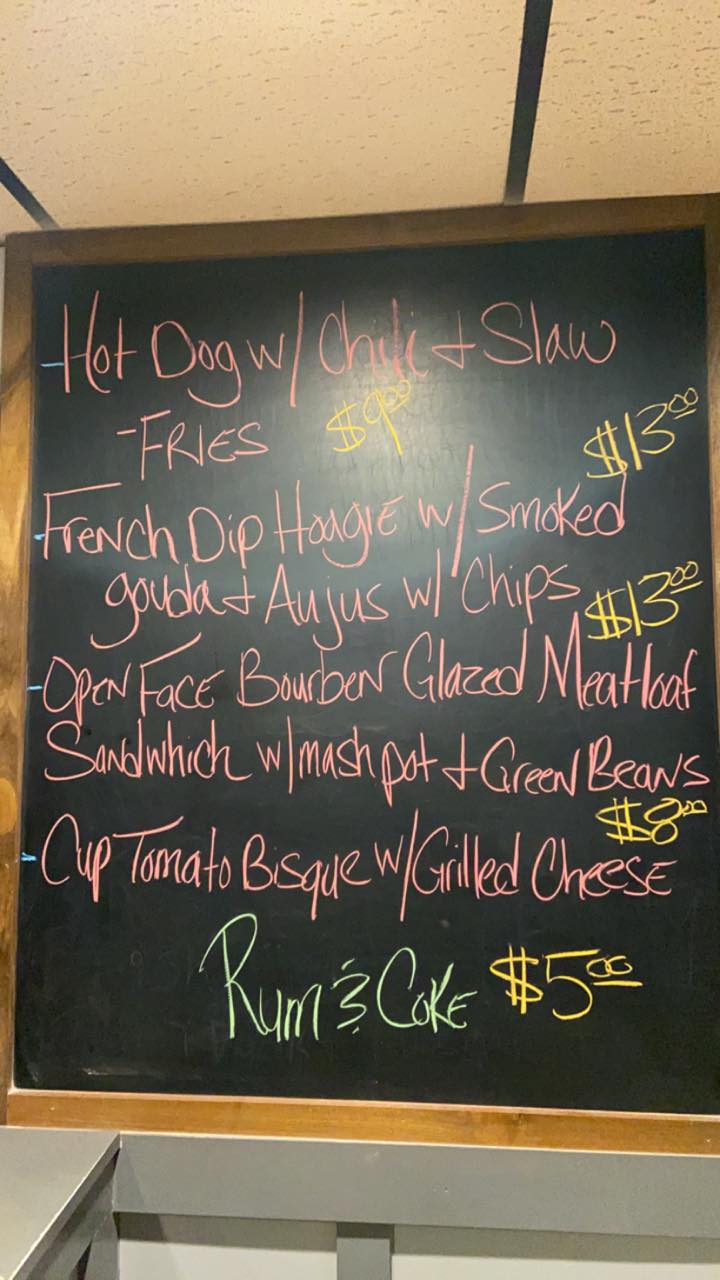 - Hot Dog w/ Chili + Slaw
- FRIES $9.00
$13.00
- French Dip Hoagie w/ Smoked
gouda + Aujus w/ Chips
$13.00
- Open Face Bourben Glazed Meatloaf
Sandwhich w/ mash pot + Green Beans
$8.00
- Cup Tomato Bisque w/ Grilled Cheese
Rum & Coke $5.00